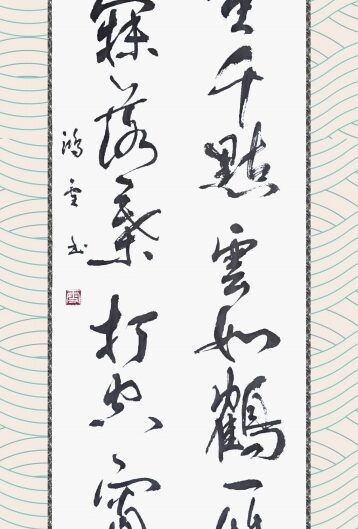 千點雲如鶴一
寐落葉打空窗
鴻
書